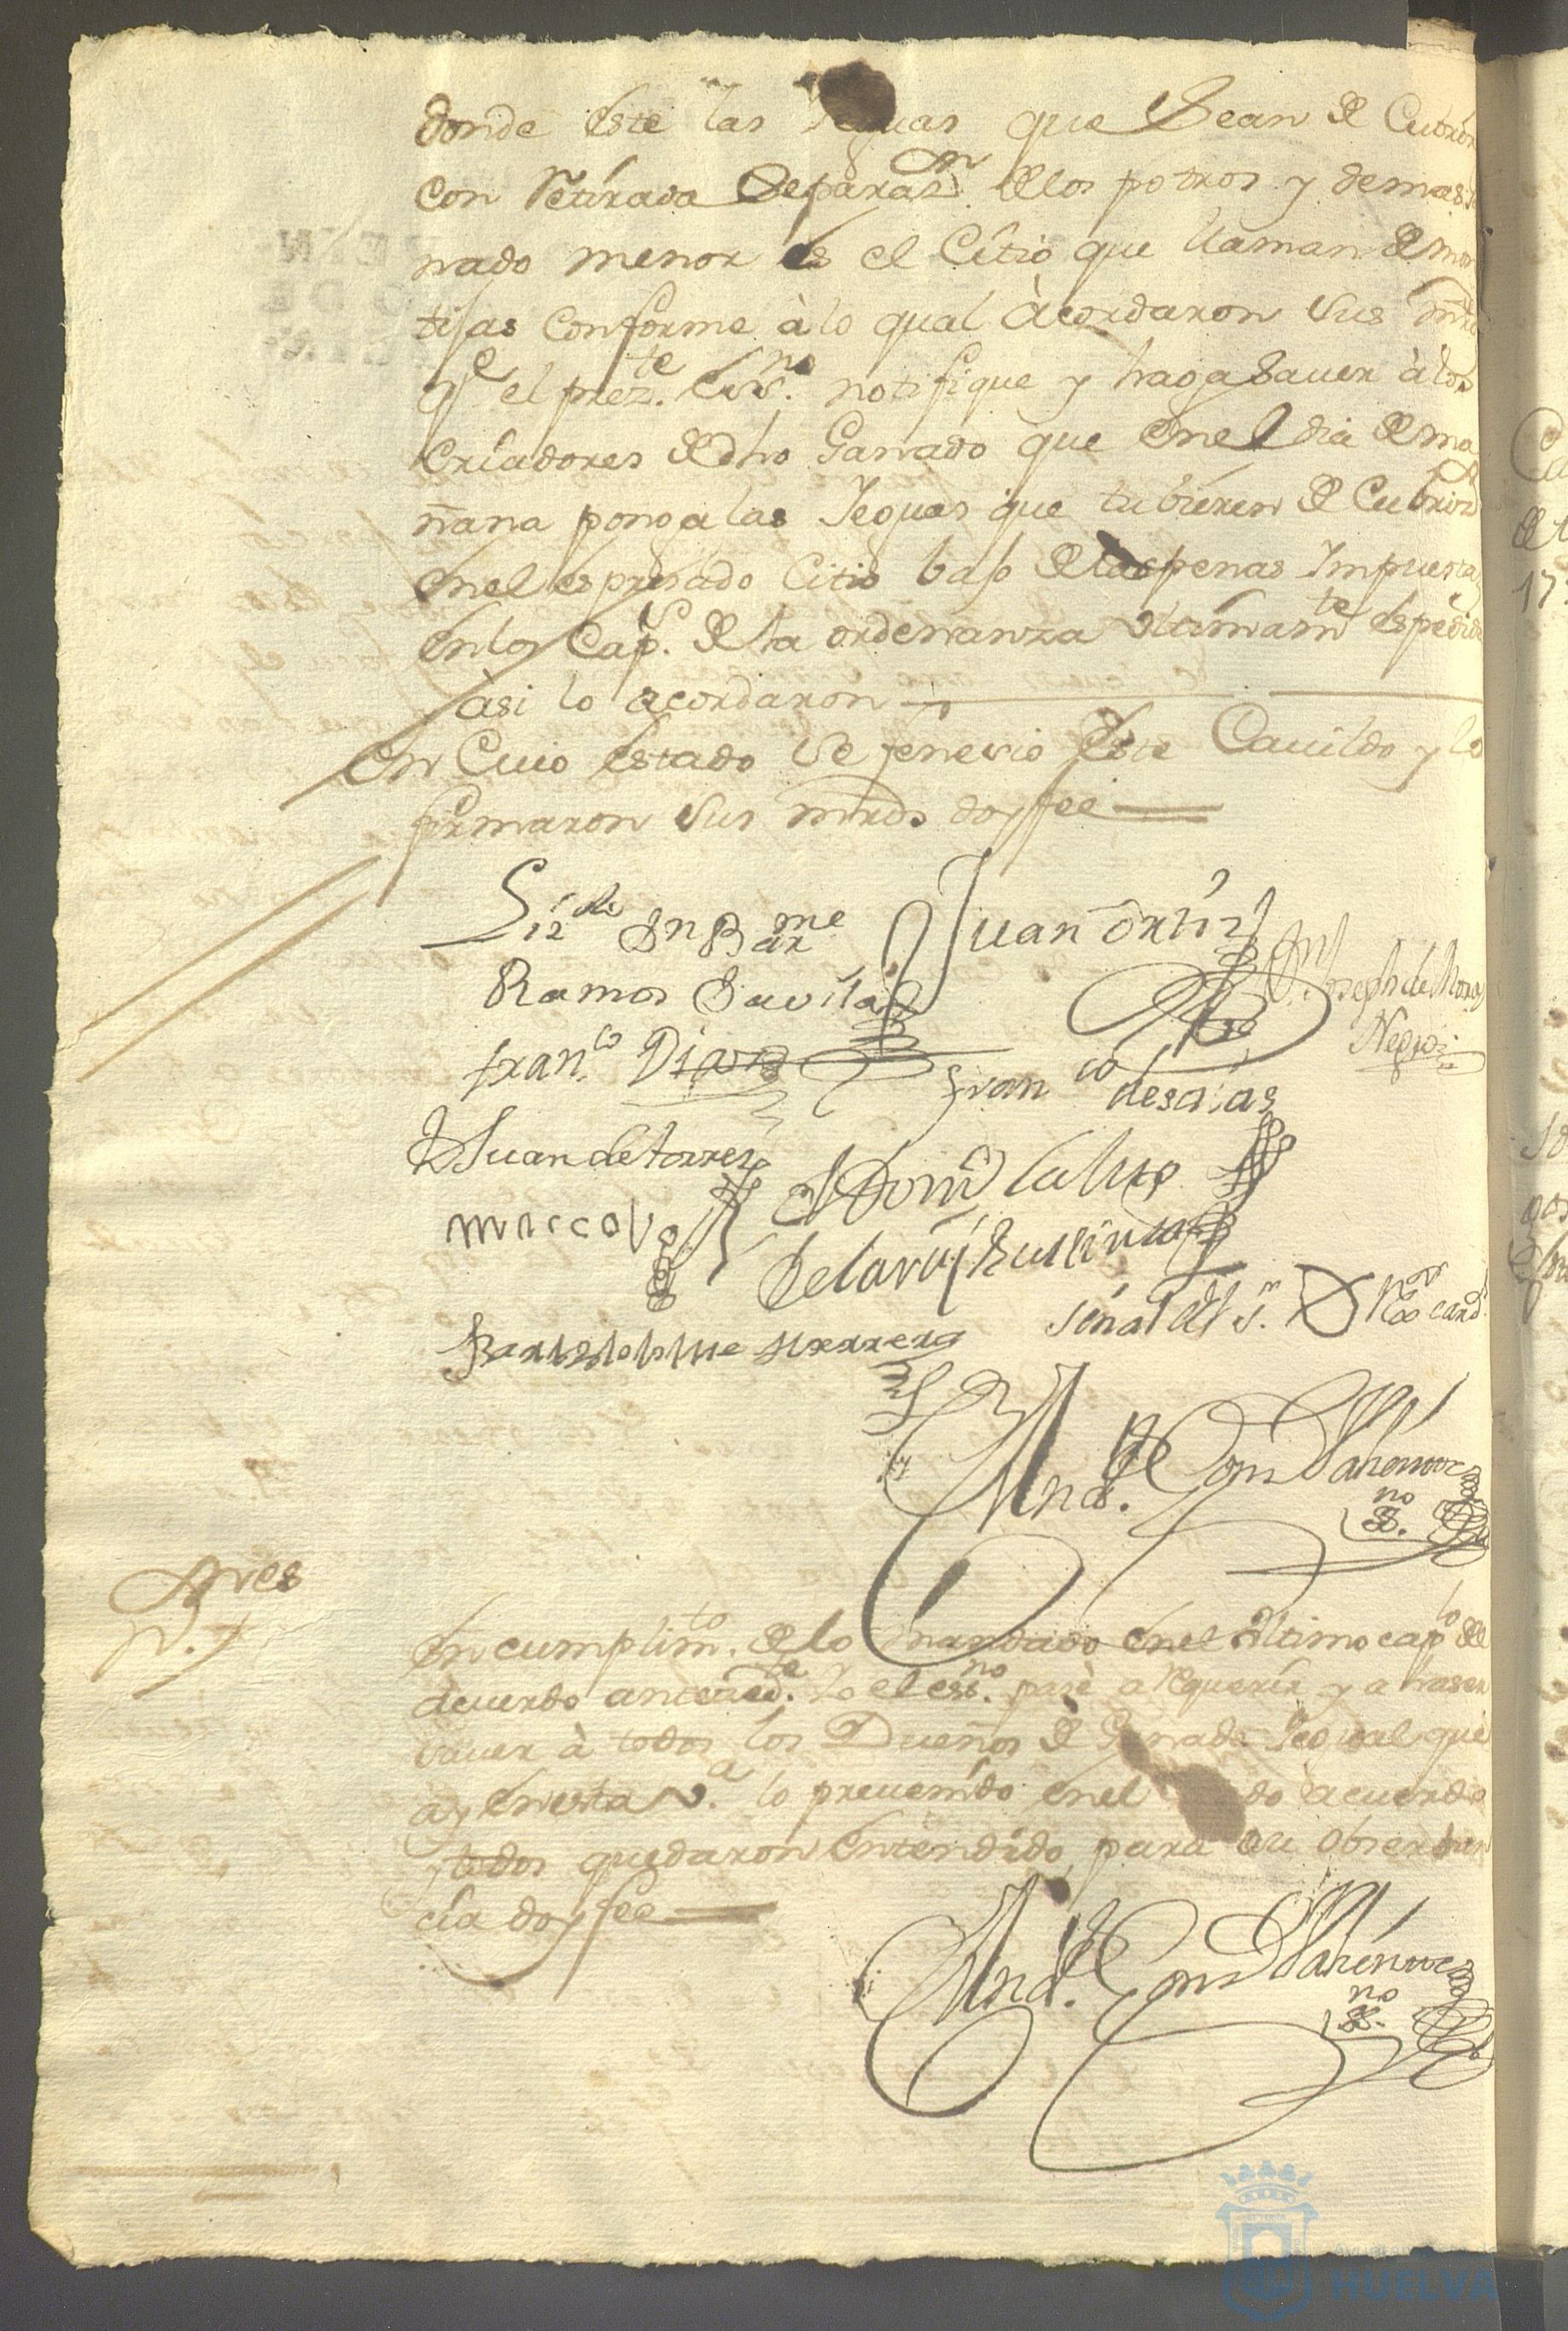 donde este las Yeguas que sean de Cubrir
con retirada separaz.on de los potros y demas
nado menor es el Citio que llaman de mon
tijas conforme à lo qual àcordaron sus mrds
q.e el prez.te Ess.no notifique y haga saver à los
Criadores de dho Ganado que en el dia de ma
ñana ponga las Yeguas que tubieren de Cubrizon
en el espresado Citio bajo de las penas Impuestas
en los Cap.s de la ordenanza ultimam.te espedida
àsi lo acordaron
En Cuio estado se fenecio este Cavildo y lo
firmaron sus mrds doy fee
Liz.do Dn Bar.me
Ramos Davila
Juan Ortiz
Dn Joseph de Mora
Negro
fran.co Diaz
Fran.co desaias
Juan de torres
Dom.o
Bartholome Herrera
señal del S.r
And.s Gom
no
SS.
En cumplim.to de lo mandado en el ultimo cap.lo del
acuerdo anteced.te Yo el ess.no pasè a requerir y a haser
saver à todos los Dueños de Ganado Yegual que
ay en esta V.a lo prevenido en el do acuerdo
y todos quedaron entendido para su observan
cia doy fee
And.s Gom
no
SS.
HUELVA